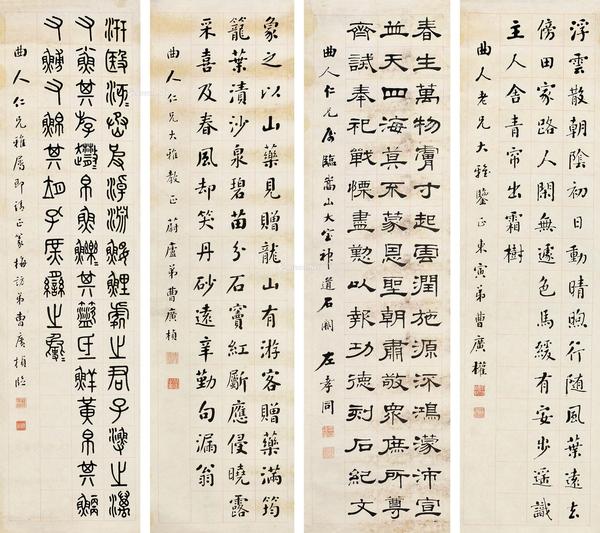 浮雲散朝陰初日動晴煦行随風葉遠去
傍田家路人閑無遽色馬緩有安步遥識
主人舍青帘出霜樹
曲人老兄大雅鑒正東寅弟曹廣權
春生萬物膚寸起雲潤施源流鴻濛沛宣
並天四海莫不蒙恩聖朝肅敬衆庶所尊
齊誠奉祀戰慄盡懃以報功德刻石紀文
曲人仁兄屬臨嵩山太室神道石闕 左孝同
象之以山藥見贈龍山有游客贈藥滿筠
籠葉漬沙泉碧苗分石竇紅斸應侵曉露
采喜及春風却笑丹砂遠辛勤句漏翁
曲人仁兄大雅教正蔚廬弟曹廣楨
汧殹沔烝皮淖淵鰋鯉處之君子漁之澫
又鯊其斿帛魚其盜氐鮮黃帛其
又又其孔庶臠之
曲人仁兄雅屬即請正篆梅訪弟曹廣楨臨